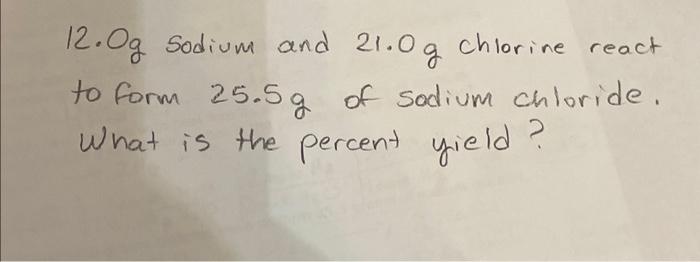 12.0g Sodium and 21.0g chlorine react
to form 25.5g of sodium chloride.
What is the percent yield?